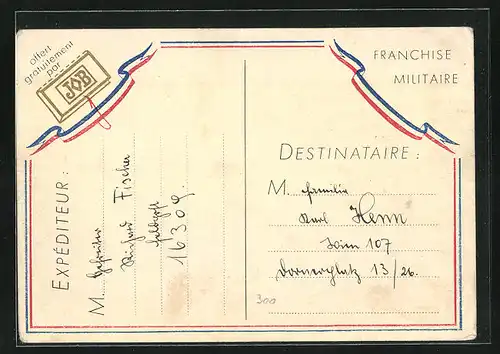 offert
gratuitement
par
JOB
FRANCHISE
MILITAIRE
EXPÉDITEUR :
M. Gefreiter
Richard Fischer
Feldpost
16309.
DESTINATAIRE :
M. Familie
Karl Henn
Wien 107
Dornerplatz 13/26.
300